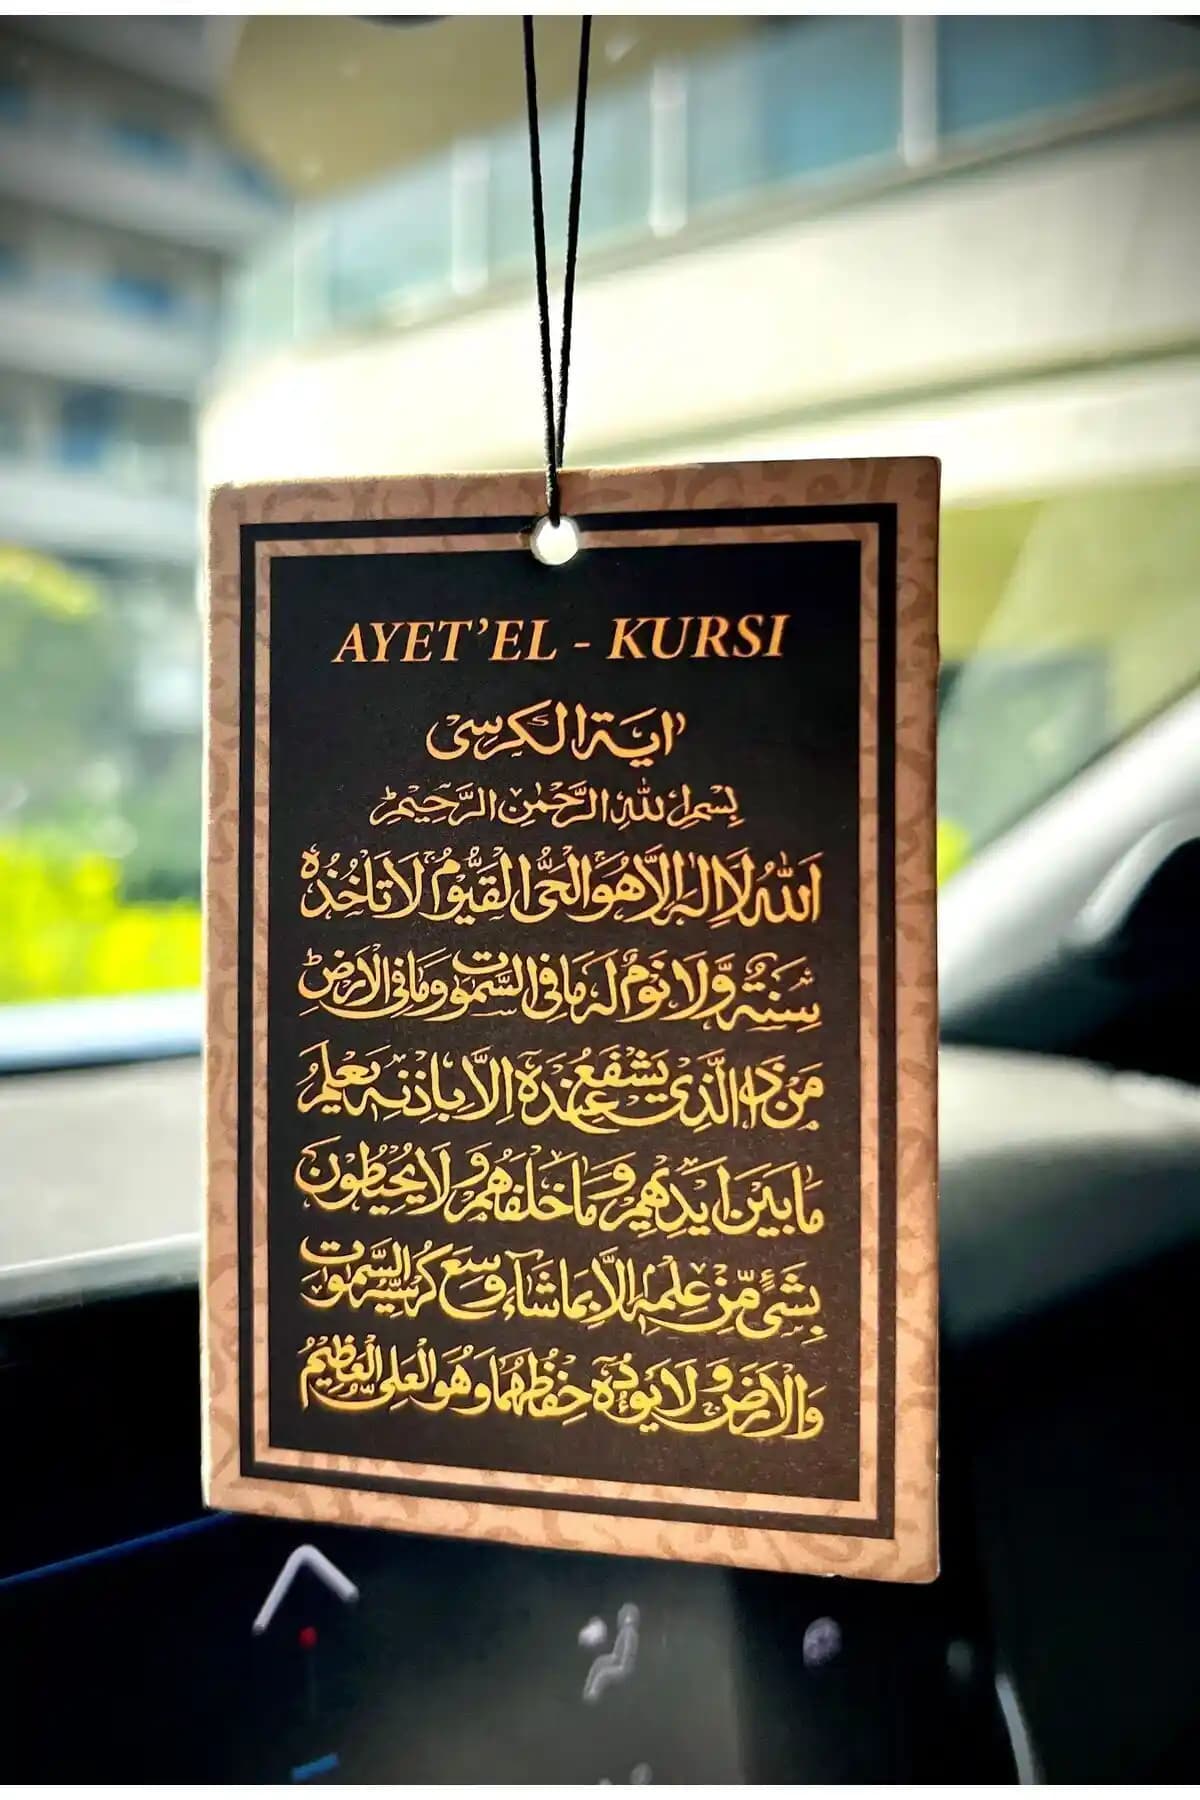 AYET'EL - KURSI
اٰيَةُ الْكُرْسِى
بِسْمِ اللّٰهِ الرَّحْمٰنِ الرَّحِيمِ
اَللّٰهُ لَا اِلٰهَ اِلَّا هُوَ الْحَىُّ الْقَيُّومُ لَا تَاْخُذُهُ
سِنَةٌ وَلَا نَوْمٌ لَهُ مَا فِى السَّمٰوَاتِ وَمَا فِى الْاَرْضِ
مَنْ ذَا الَّذِى يَشْفَعُ عِنْدَهُ اِلَّا بِاِذْنِهِ يَعْلَمُ
مَا بَيْنَ اَيْدِيهِمْ وَمَا خَلْفَهُمْ وَلَا يُحِيطُونَ
بِشَىْءٍ مِنْ عِلْمِهِ اِلَّا بِمَا شَاءَ وَسِعَ كُرْسِيُّهُ السَّمٰوَاتِ
وَالْاَرْضَ وَلَا يَؤُدُهُ حِفْظُهُمَا وَهُوَ الْعَلِىُّ الْعَظِيمُ